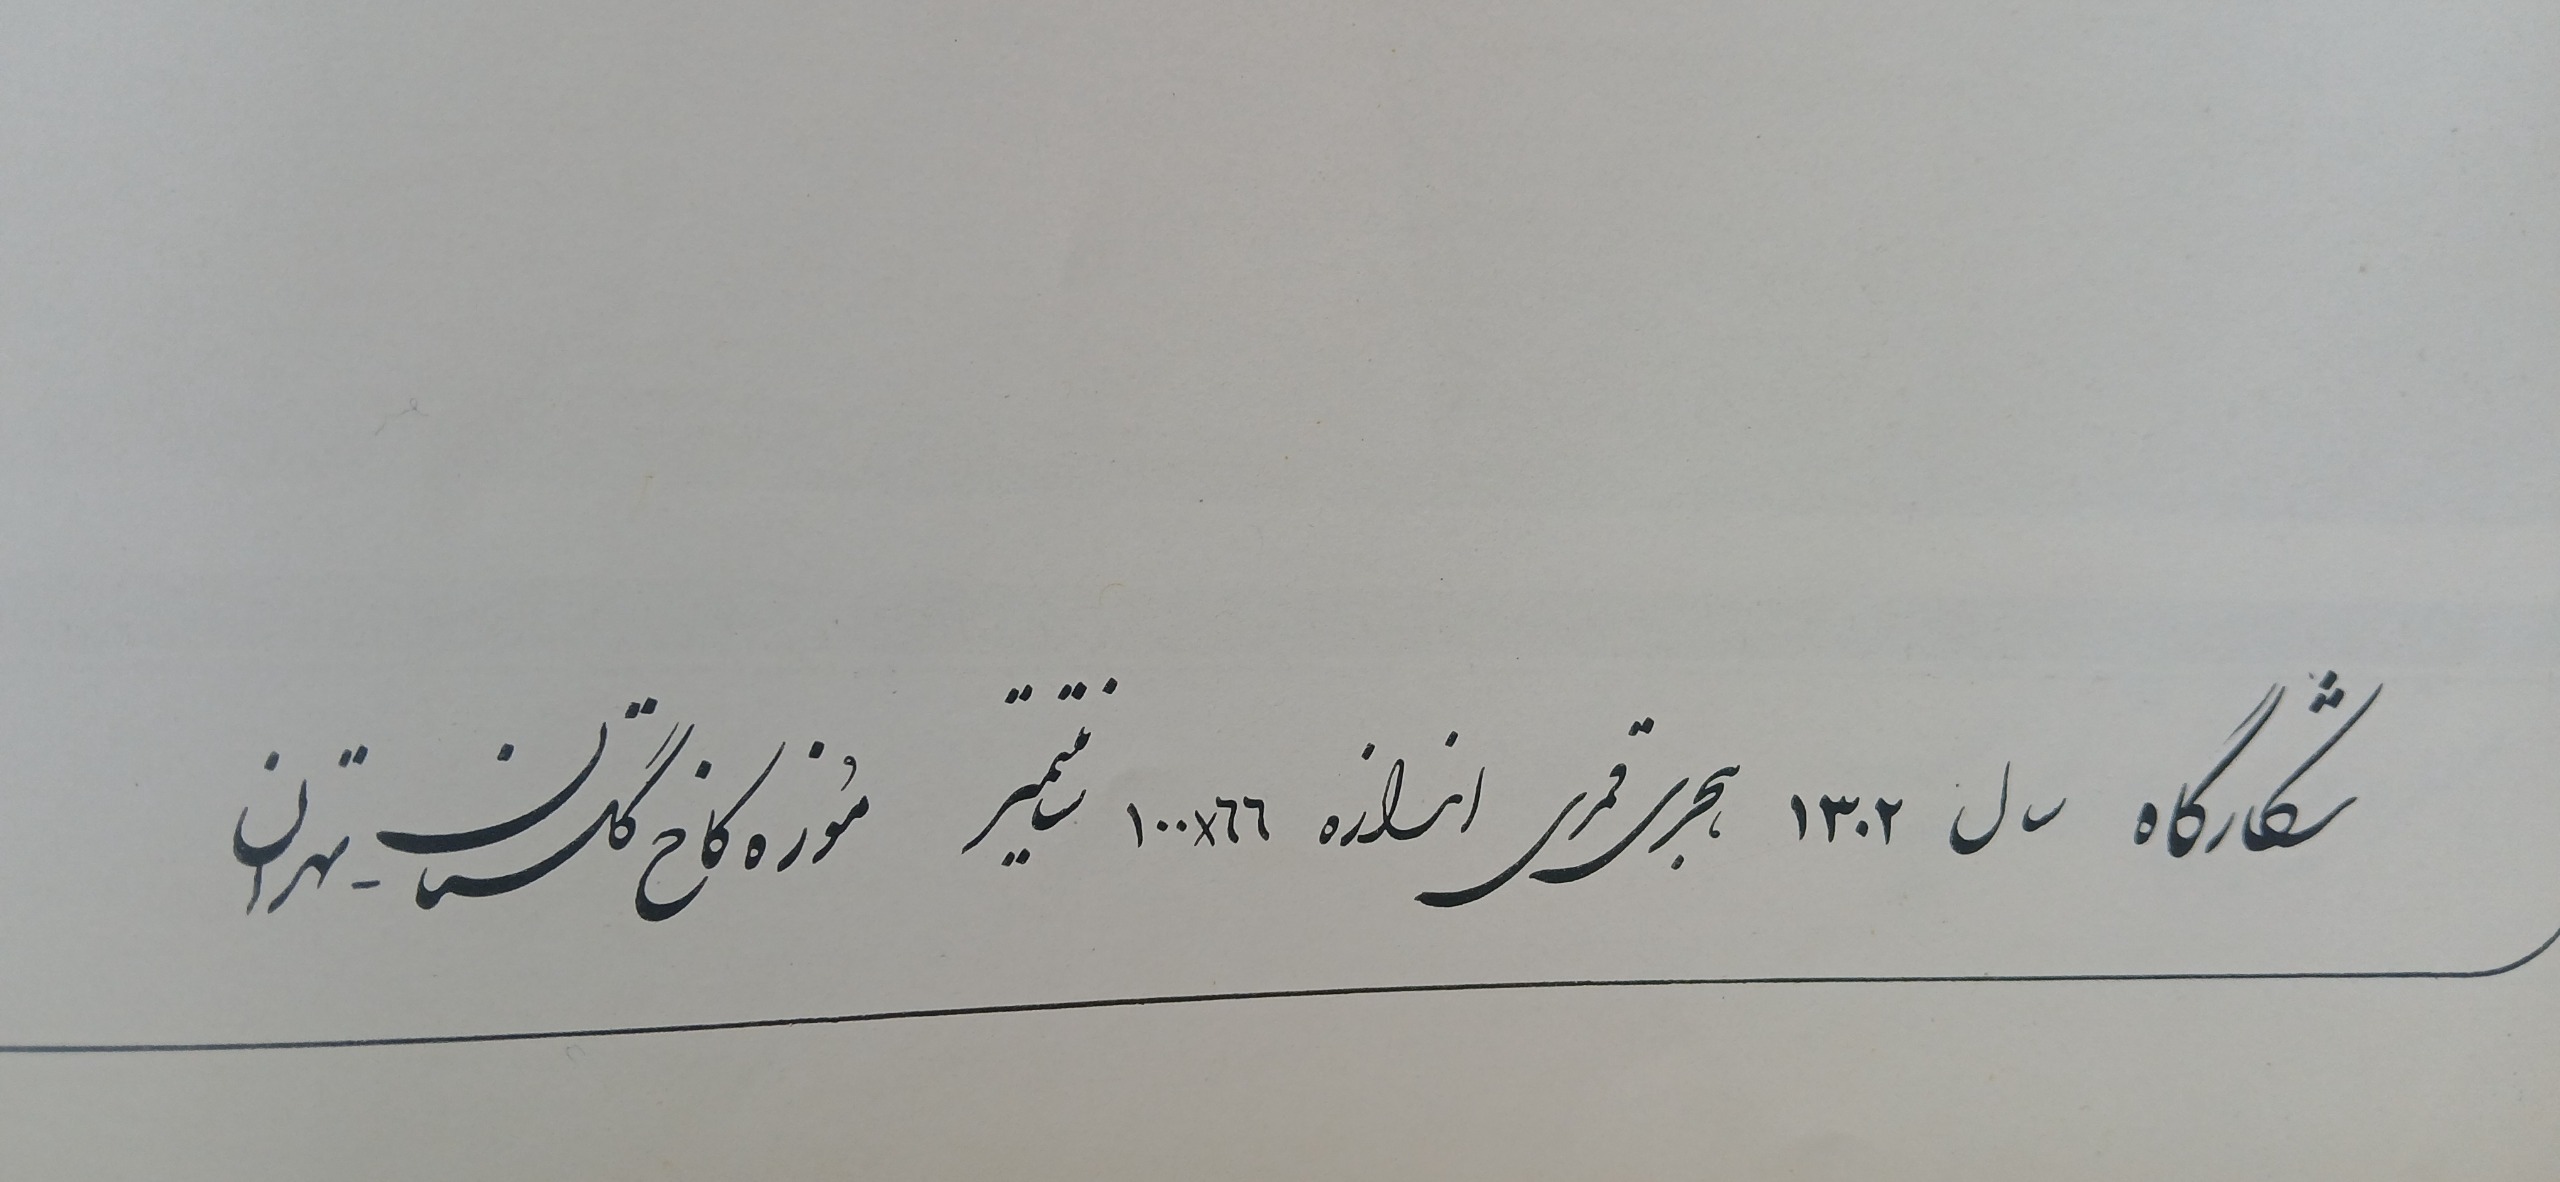 شکارگاه سال ۱۳۰۲ هجری قمری اندازه ۱۰۰x۶۶ سانتیمتر موزه کاخ گلستان - تهران